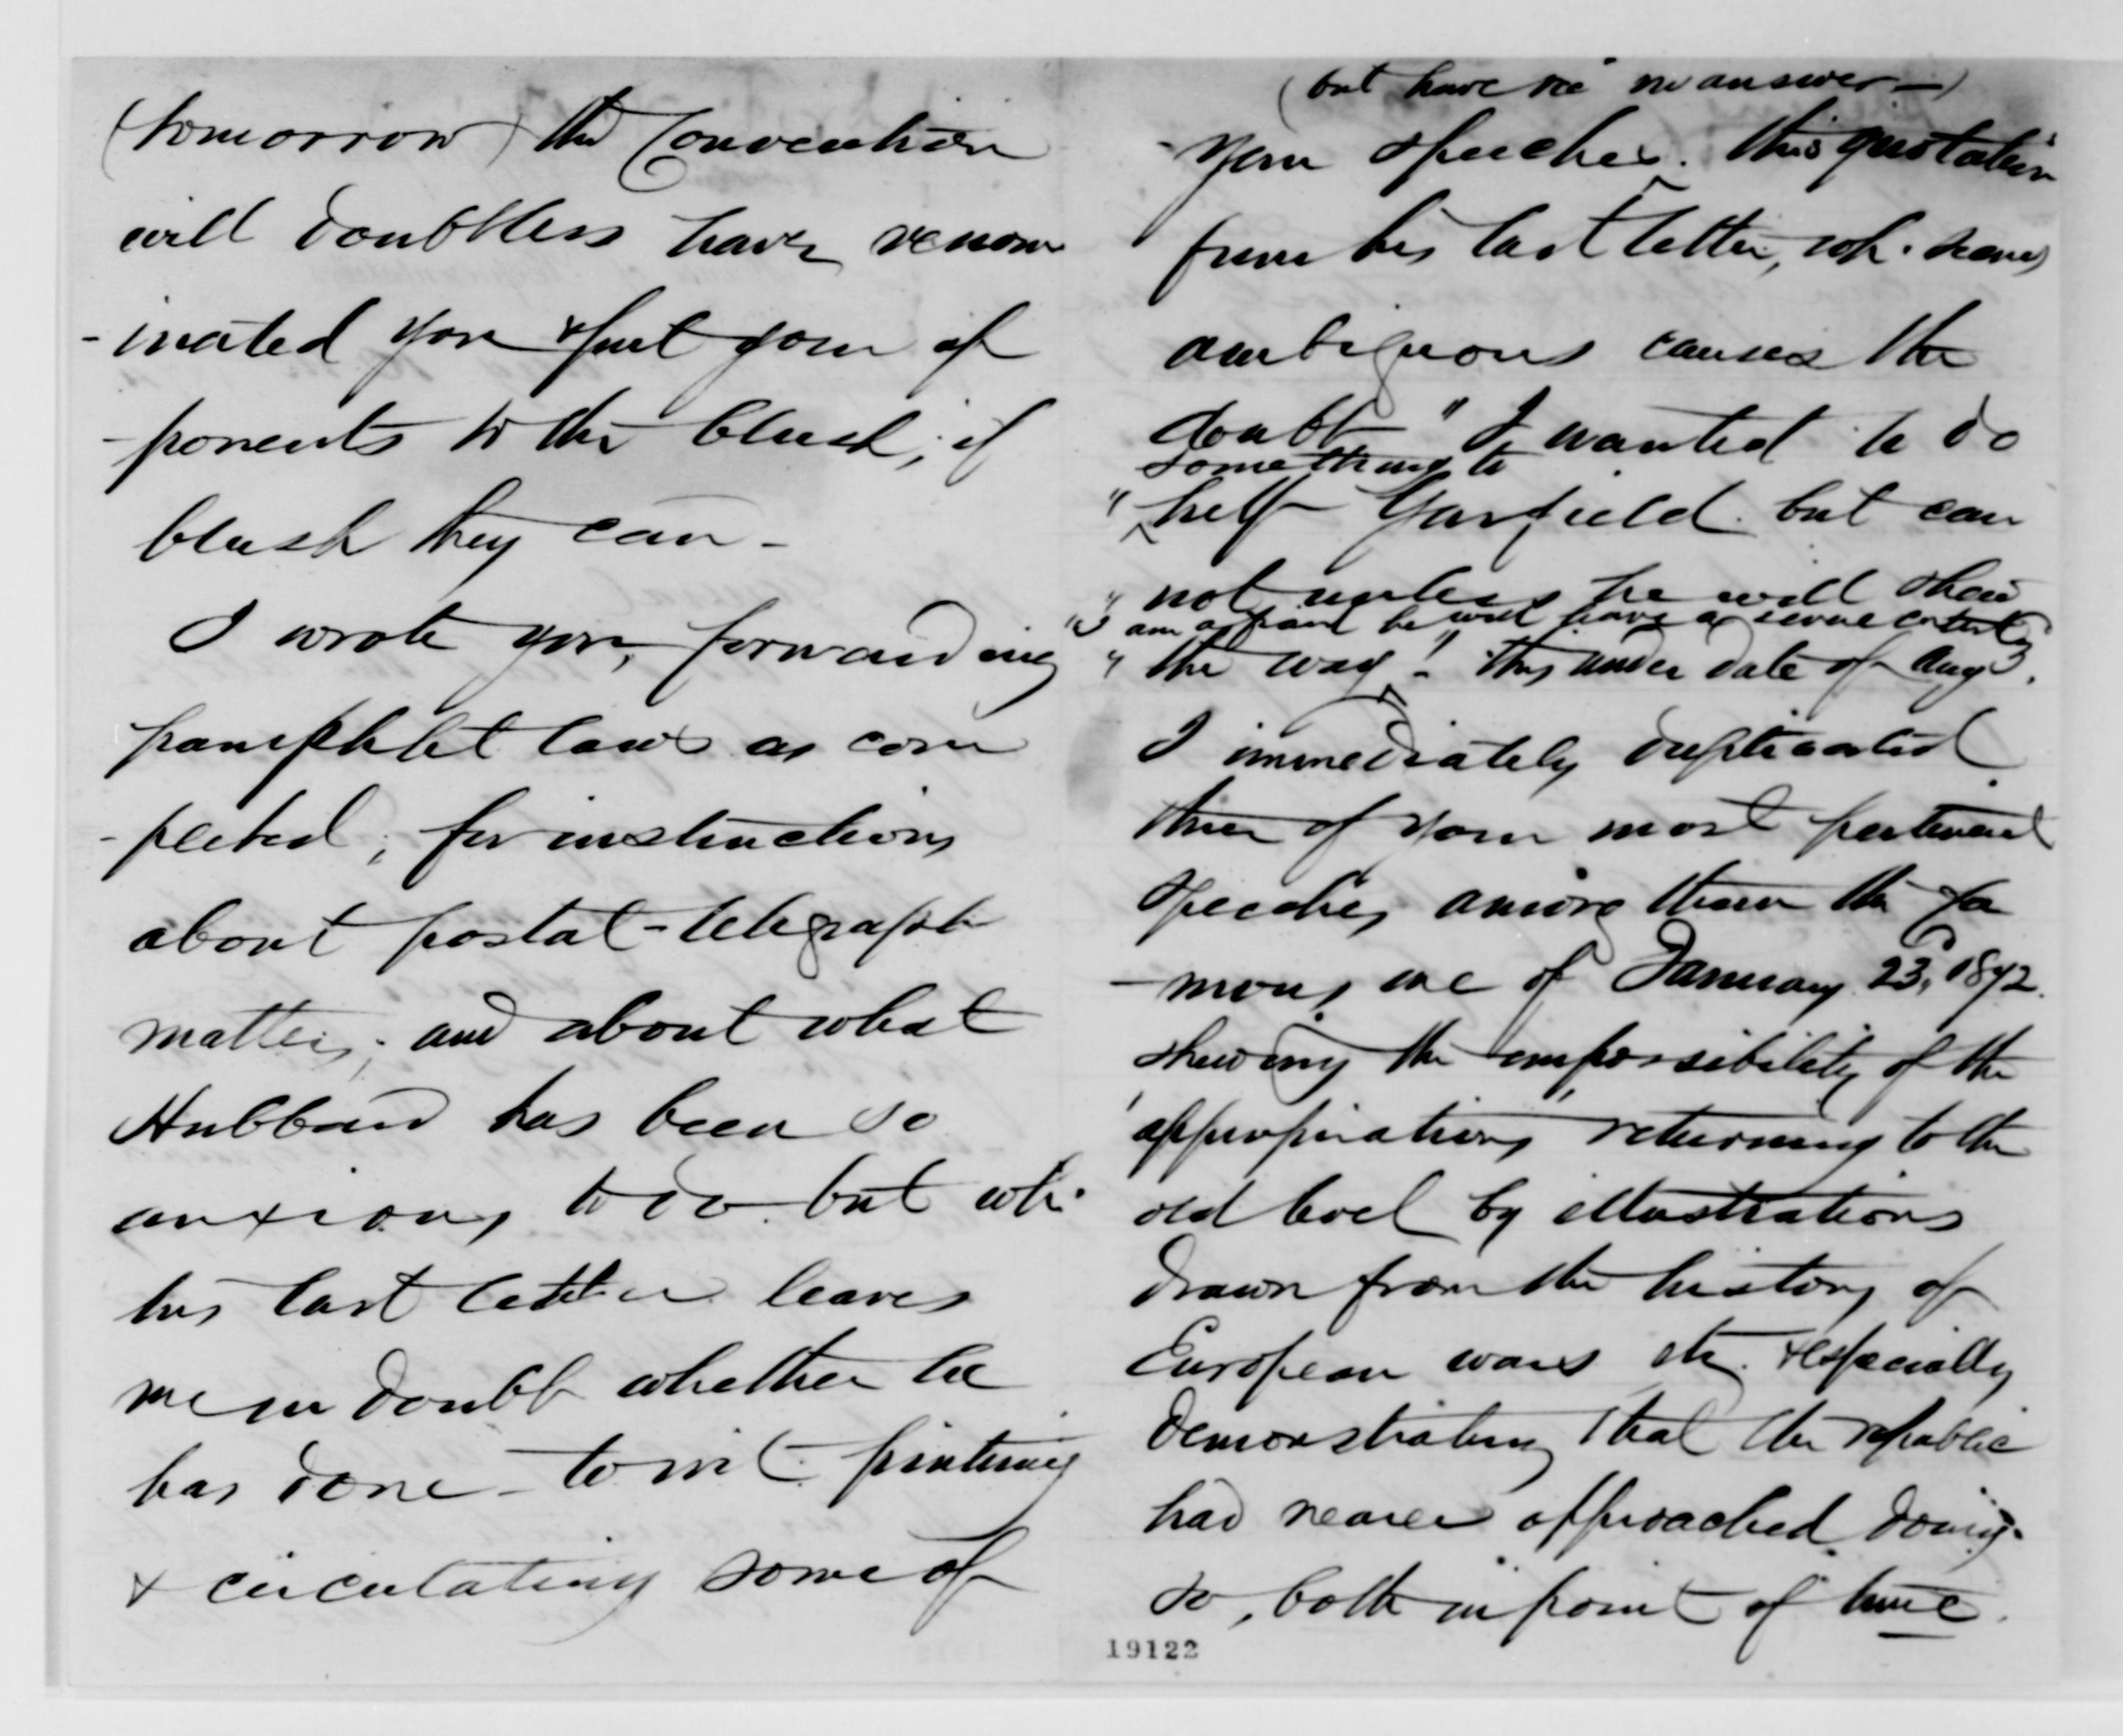 (tomorrow) the Convention
will doubtless have renom
-inated you & put your op
-ponents to the blush, if
blush they can -
I wrote you, forwarding
pamphlet laws as com
-pleted; for instructions
about postal-telegraph
matters; and about what
Hubbard has been so
anxious to do but wh.
his last letter leaves
me in doubt whether he
has done - to wit - printing
& circulating some of
(but have rec no answer -)
your speeches. this quotation
from his last letter, wh. seems
ambiguous causes the
doubt "I wanted to do
something to
"help Garfield but can
"not unless he will show
"I am afraid he will have a severe contest
"the way". This under date of Aug 3.
I immediately duplicated
three of your most pertinent
speeches among them the fa
-mous one of January 23, 1872.
shewing the impossibility of the
'appropriations' returning to the
old level by illustrations
drawn from the history of
European wars etc. & especially
demonstrating that the republic
had nearer approached doing
so, both in point of time.
19122